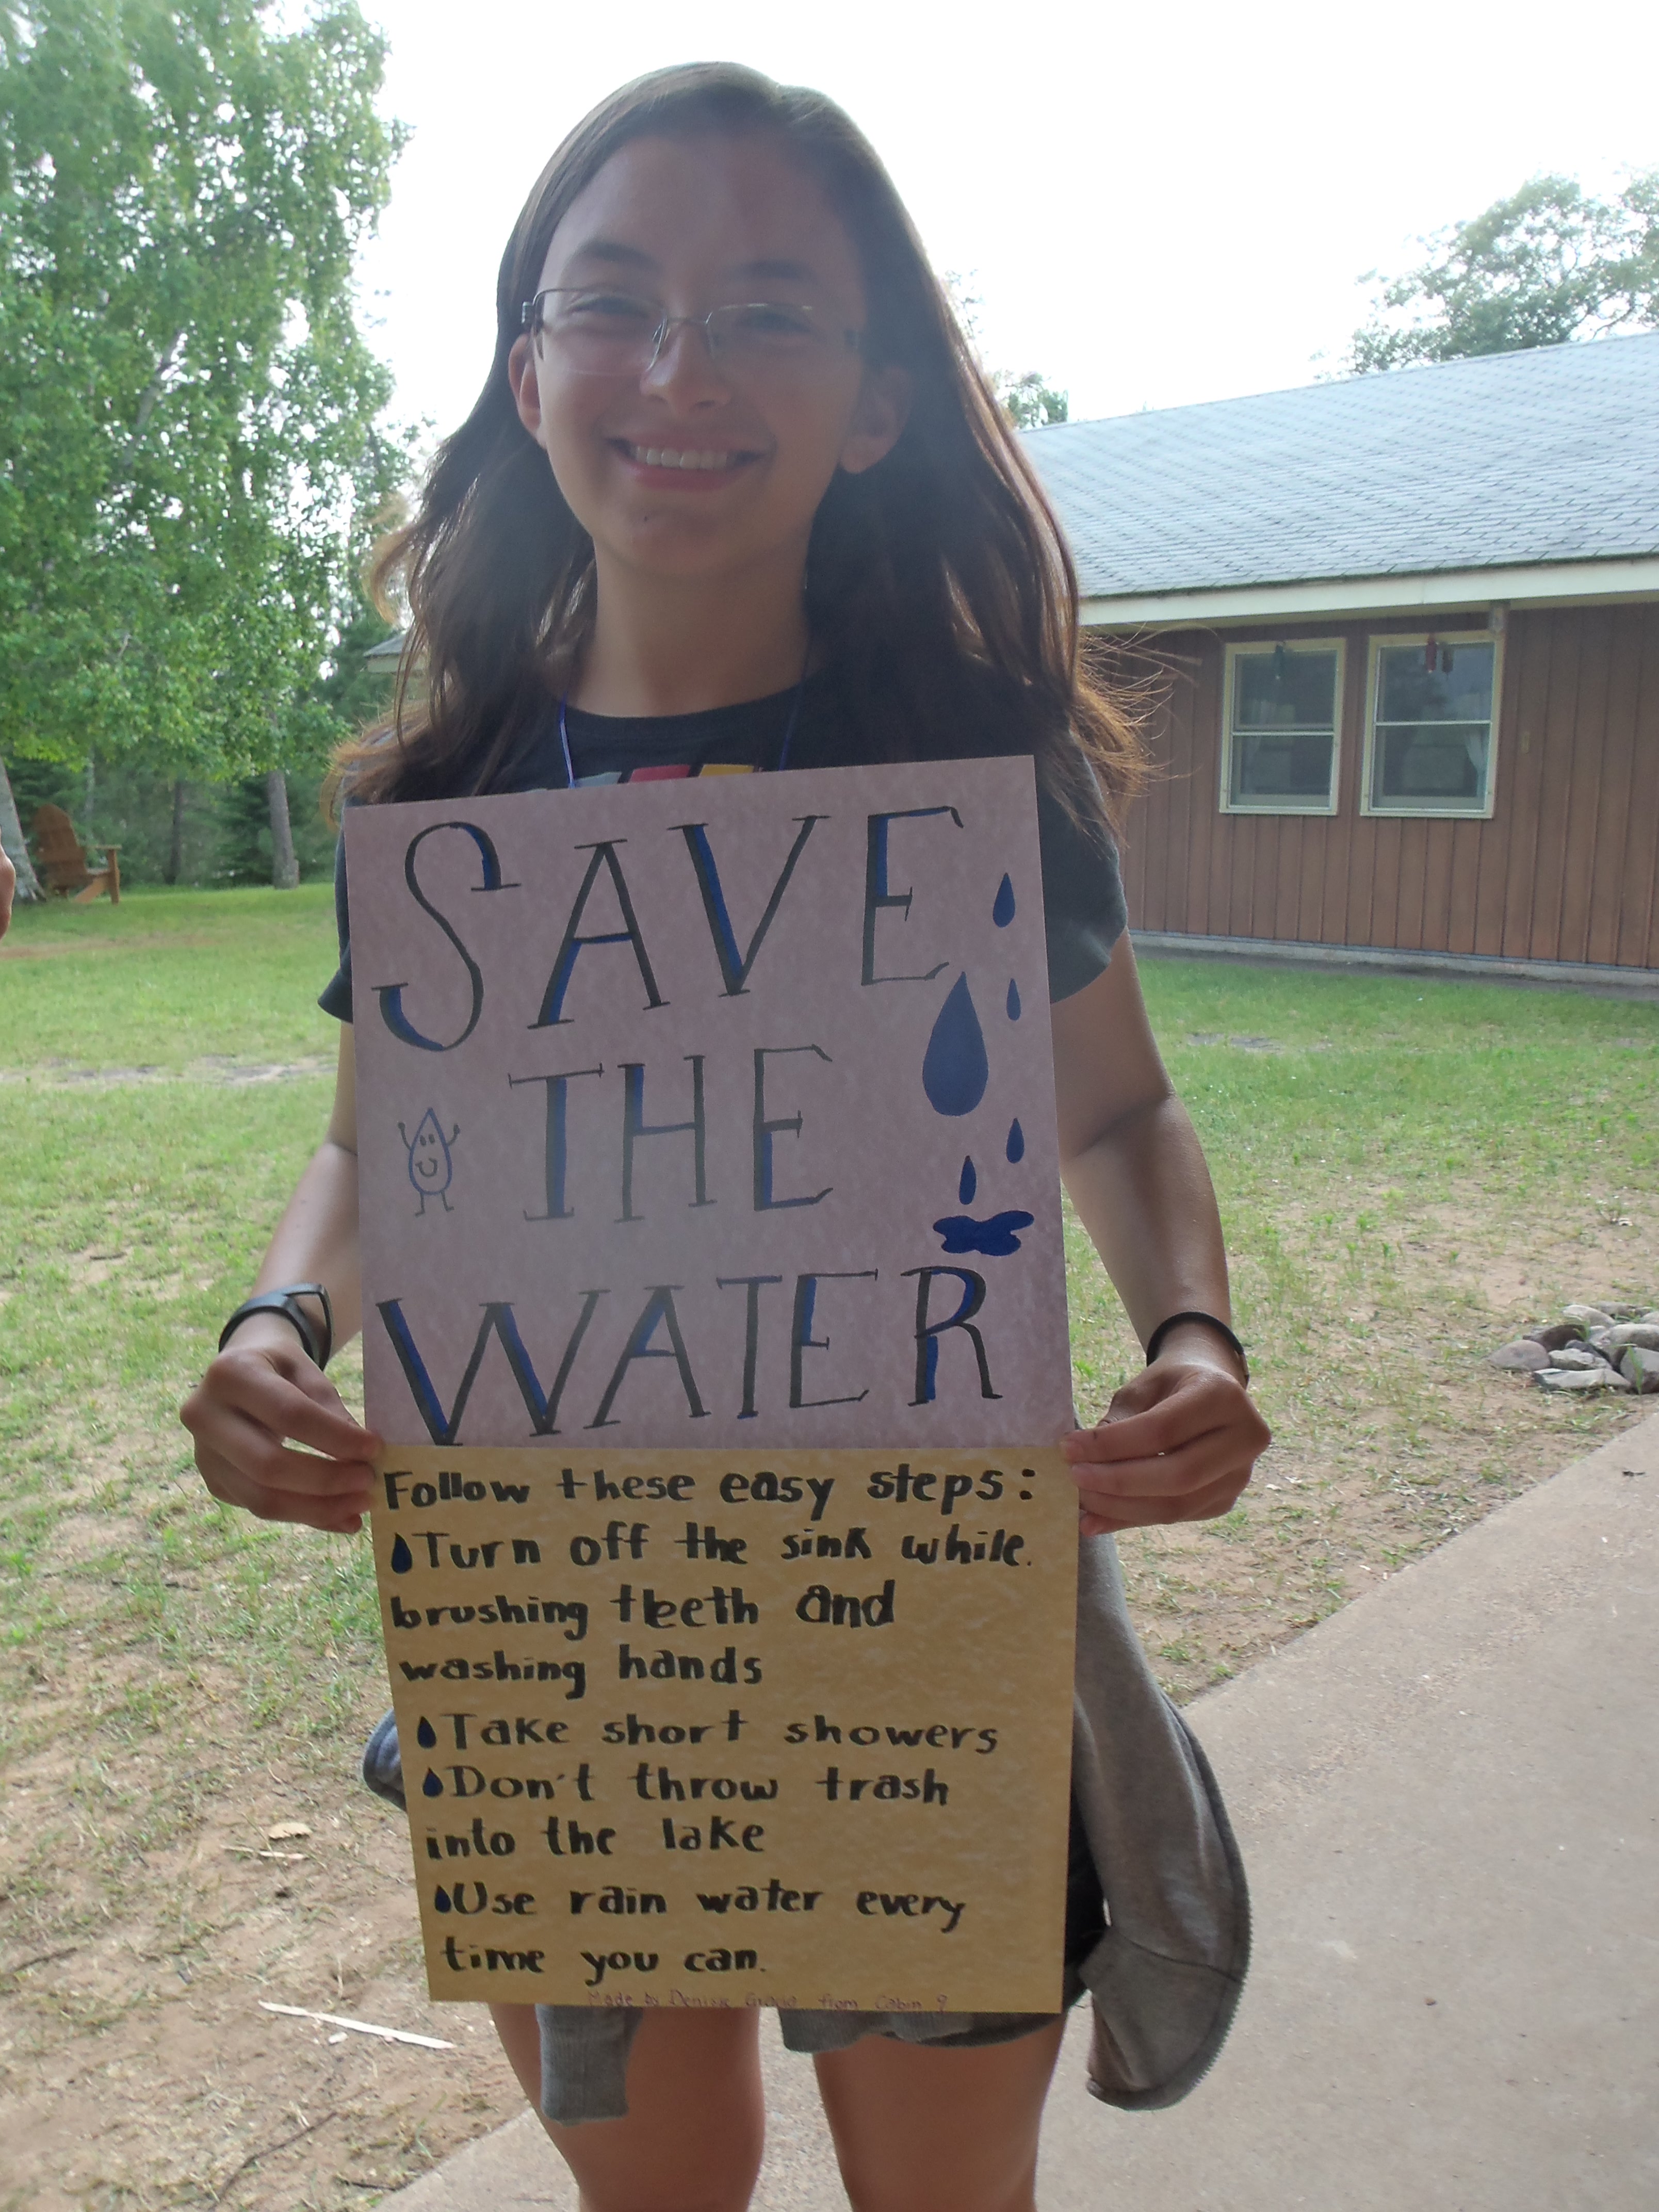 SAVE
THE
WATER
Follow these easy steps:
Turn off the sink while
brushing teeth and
washing hands
Take short showers
Don't throw trash
into the lake
Use rain water every
time you can.
Made by Denise from Cabin 9